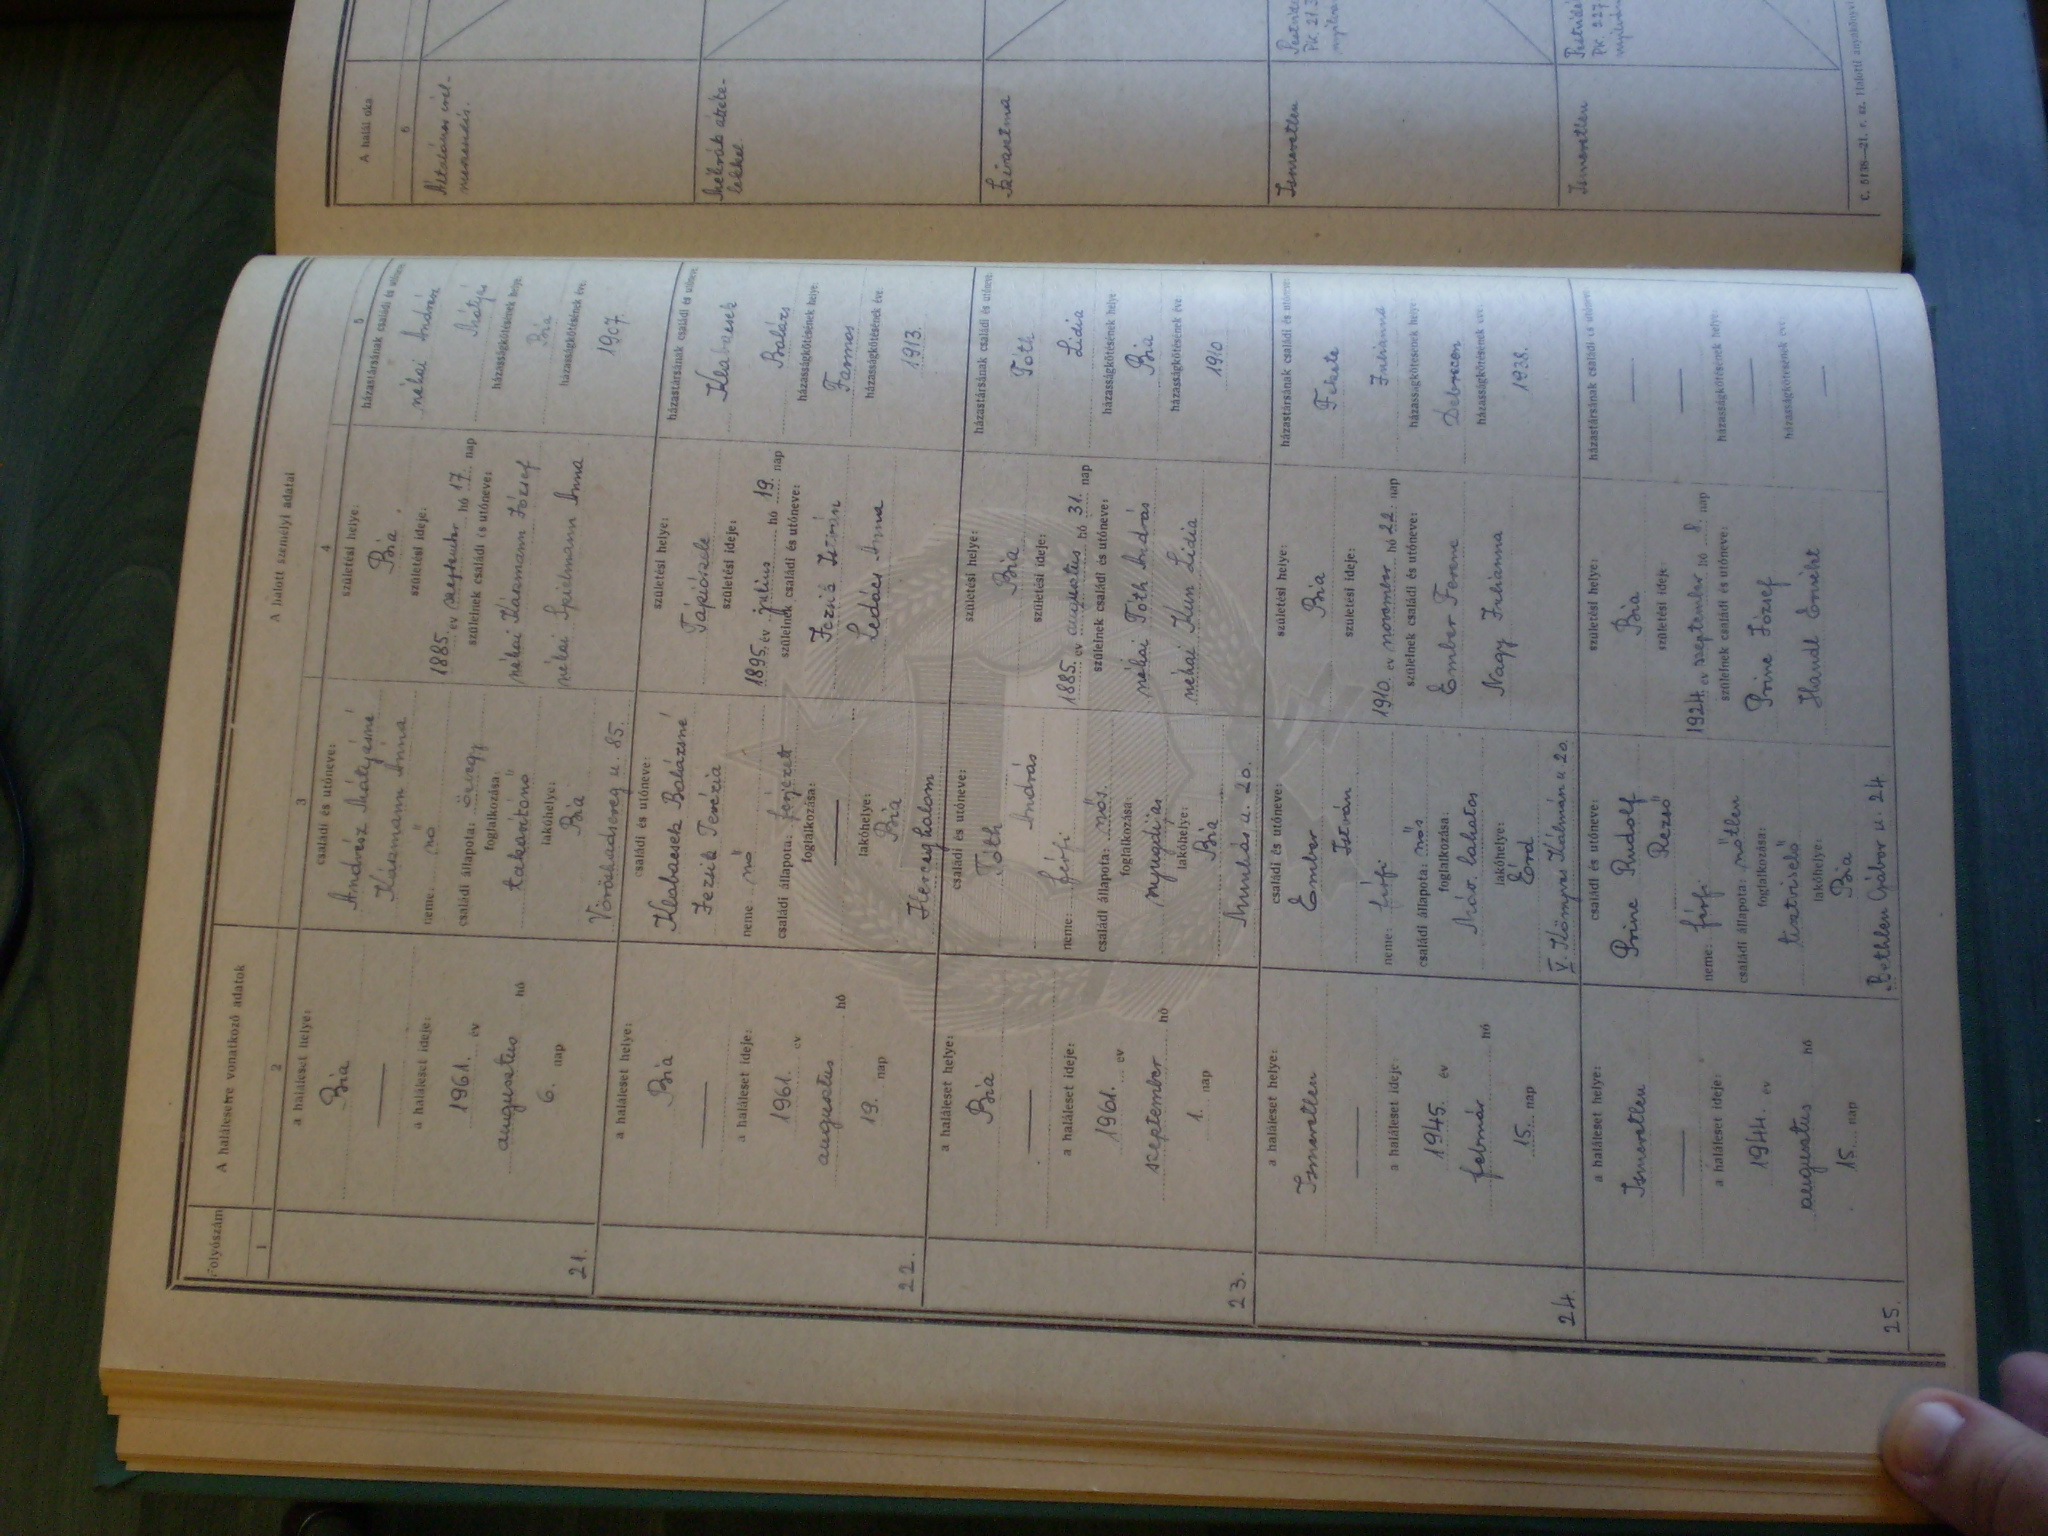 Folyószám
A halálesetre vonatkozó adatok
A halott személyi adatai
1
2
3
4
5
a haláleset helye:
Bia
a haláleset ideje:
1961. év
augusztus hó
6. nap
21.
családi és utóneve:
Andrész Mátyásné
Käszmann Anna
neme: nő
családi állapota: özvegy
foglalkozása:
takarítónő
lakóhelye:
Bia
Vöröshadsereg u. 85.
születési helye:
Bia
születési ideje:
1885. év szeptember hó 17. nap
szüleinek családi és utóneve:
néhai Käszmann József
néhai Spielmann Anna
házastársának családi és utóneve:
néhai
Mátyás
házasságkötésének helye:
Bia
házasságkötésének éve:
1907.
a haláleset helye:
Bia
a haláleset ideje:
1961. év
augusztus hó
19. nap
22.
családi és utóneve:
Klabacsek Balázsné
Jezsik Terézia
neme: nő
családi állapota: férjezett
foglalkozása:
lakóhelye:
Bia
Herceghalom
születési helye:
Tápiószele
születési ideje:
1895. év július hó 19. nap
szüleinek családi és utóneve:
István
Anna
házastársának családi és utóneve:
Klabacsek
Balázs
házasságkötésének helye:
házasságkötésének éve:
1913.
a haláleset helye:
Bia
a haláleset ideje:
1961. év
szeptember hó
1. nap
23.
családi és utóneve:
Tóth
András
neme: férfi
családi állapota: nős.
foglalkozása:
nyugdíjas
lakóhelye:
Bia
Munkás u. 20.
születési helye:
Bia
születési ideje:
1885. év augusztus hó 31. nap
szüleinek családi és utóneve:
néhai Tóth András
néhai Kun Lidia
házastársának családi és utóneve:
Tóth
Lidia
házasságkötésének helye:
Bia
házasságkötésének éve:
1910
a haláleset helye:
Ismeretlen
a haláleset ideje:
1945. év
február hó
15. nap
24.
családi és utóneve:
Ember
István
neme: férfi
családi állapota: nős
foglalkozása:
Máv. lakatos
lakóhelye:
Érd
V. Könyves Kálmán u. 20.
születési helye:
Bia
születési ideje:
1910. év november hó 22. nap
szüleinek családi és utóneve:
Ember Ferenc
Nagy Julianna
házastársának családi és utóneve:
Fekete
Julianna
házasságkötésének helye:
Debrecen
házasságkötésének éve:
1938.
a haláleset helye:
Ismeretlen
a haláleset ideje:
1944. év
augusztus hó
15. nap
25.
családi és utóneve:
Princ Rudolf
Rezső
neme: férfi
családi állapota: nőtlen
foglalkozása:
tisztviselő
lakóhelye:
Bia
Bethlen Gábor u. 24
születési helye:
Bia
születési ideje:
1924. év szeptember hó 8. nap
szüleinek családi és utóneve:
Princ József
Handl Erzsébet
házastársának családi és utóneve:
házasságkötésének helye:
házasságkötésének éve:
A halál oka
6
Általános érelmeszesedés.
Ismeretlen
Ismeretlen
C. 5138—21. r. sz. Halotti anyakönyv